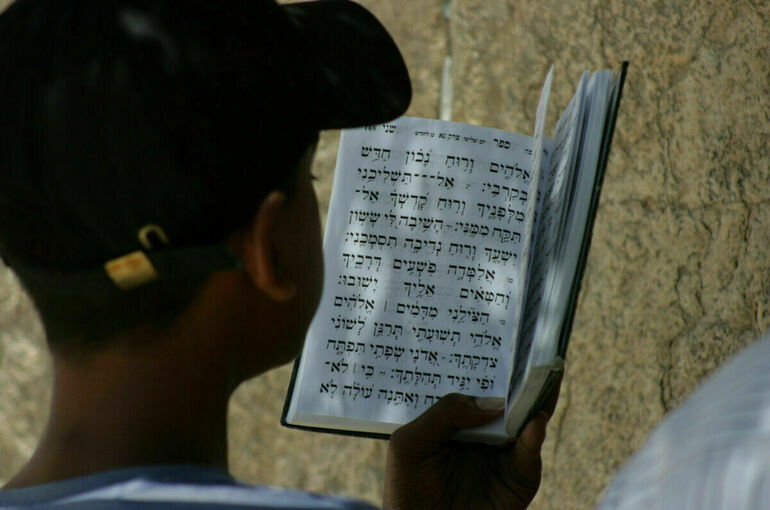 ספר יום שלישי פרק נא ט לחודש שני 165
אֱלֹהִים וְרוּחַ נָכוֹן חַדֵּשׁ
בְּקִרְבִּי: יג אַל־תַּשְׁלִיכֵנִי
מִלְּפָנֶיךָ וְרוּחַ קָדְשְׁךָ אַל־
תִּקַּח מִמֶּנִּי: יד הָשִׁיבָה לִּי שְׂשׂוֹן
יִשְׁעֶךָ וְרוּחַ נְדִיבָה תִסְמְכֵנִי:
טו אֲלַמְּדָה פֹשְׁעִים דְּרָכֶיךָ
וְחַטָּאִים אֵלֶיךָ יָשׁוּבוּ:
טז הַצִּילֵנִי מִדָּמִים | אֱלֹהִים
אֱלֹהֵי תְּשׁוּעָתִי תְּרַנֵּן לְשׁוֹנִי
צִדְקָתֶךָ: יז אֲדֹנָי שְׂפָתַי תִּפְתָּח
וּפִי יַגִּיד תְּהִלָּתֶךָ: יח כִּי | לֹא־
וְאֶתֵּנָה עוֹלָה לֹא